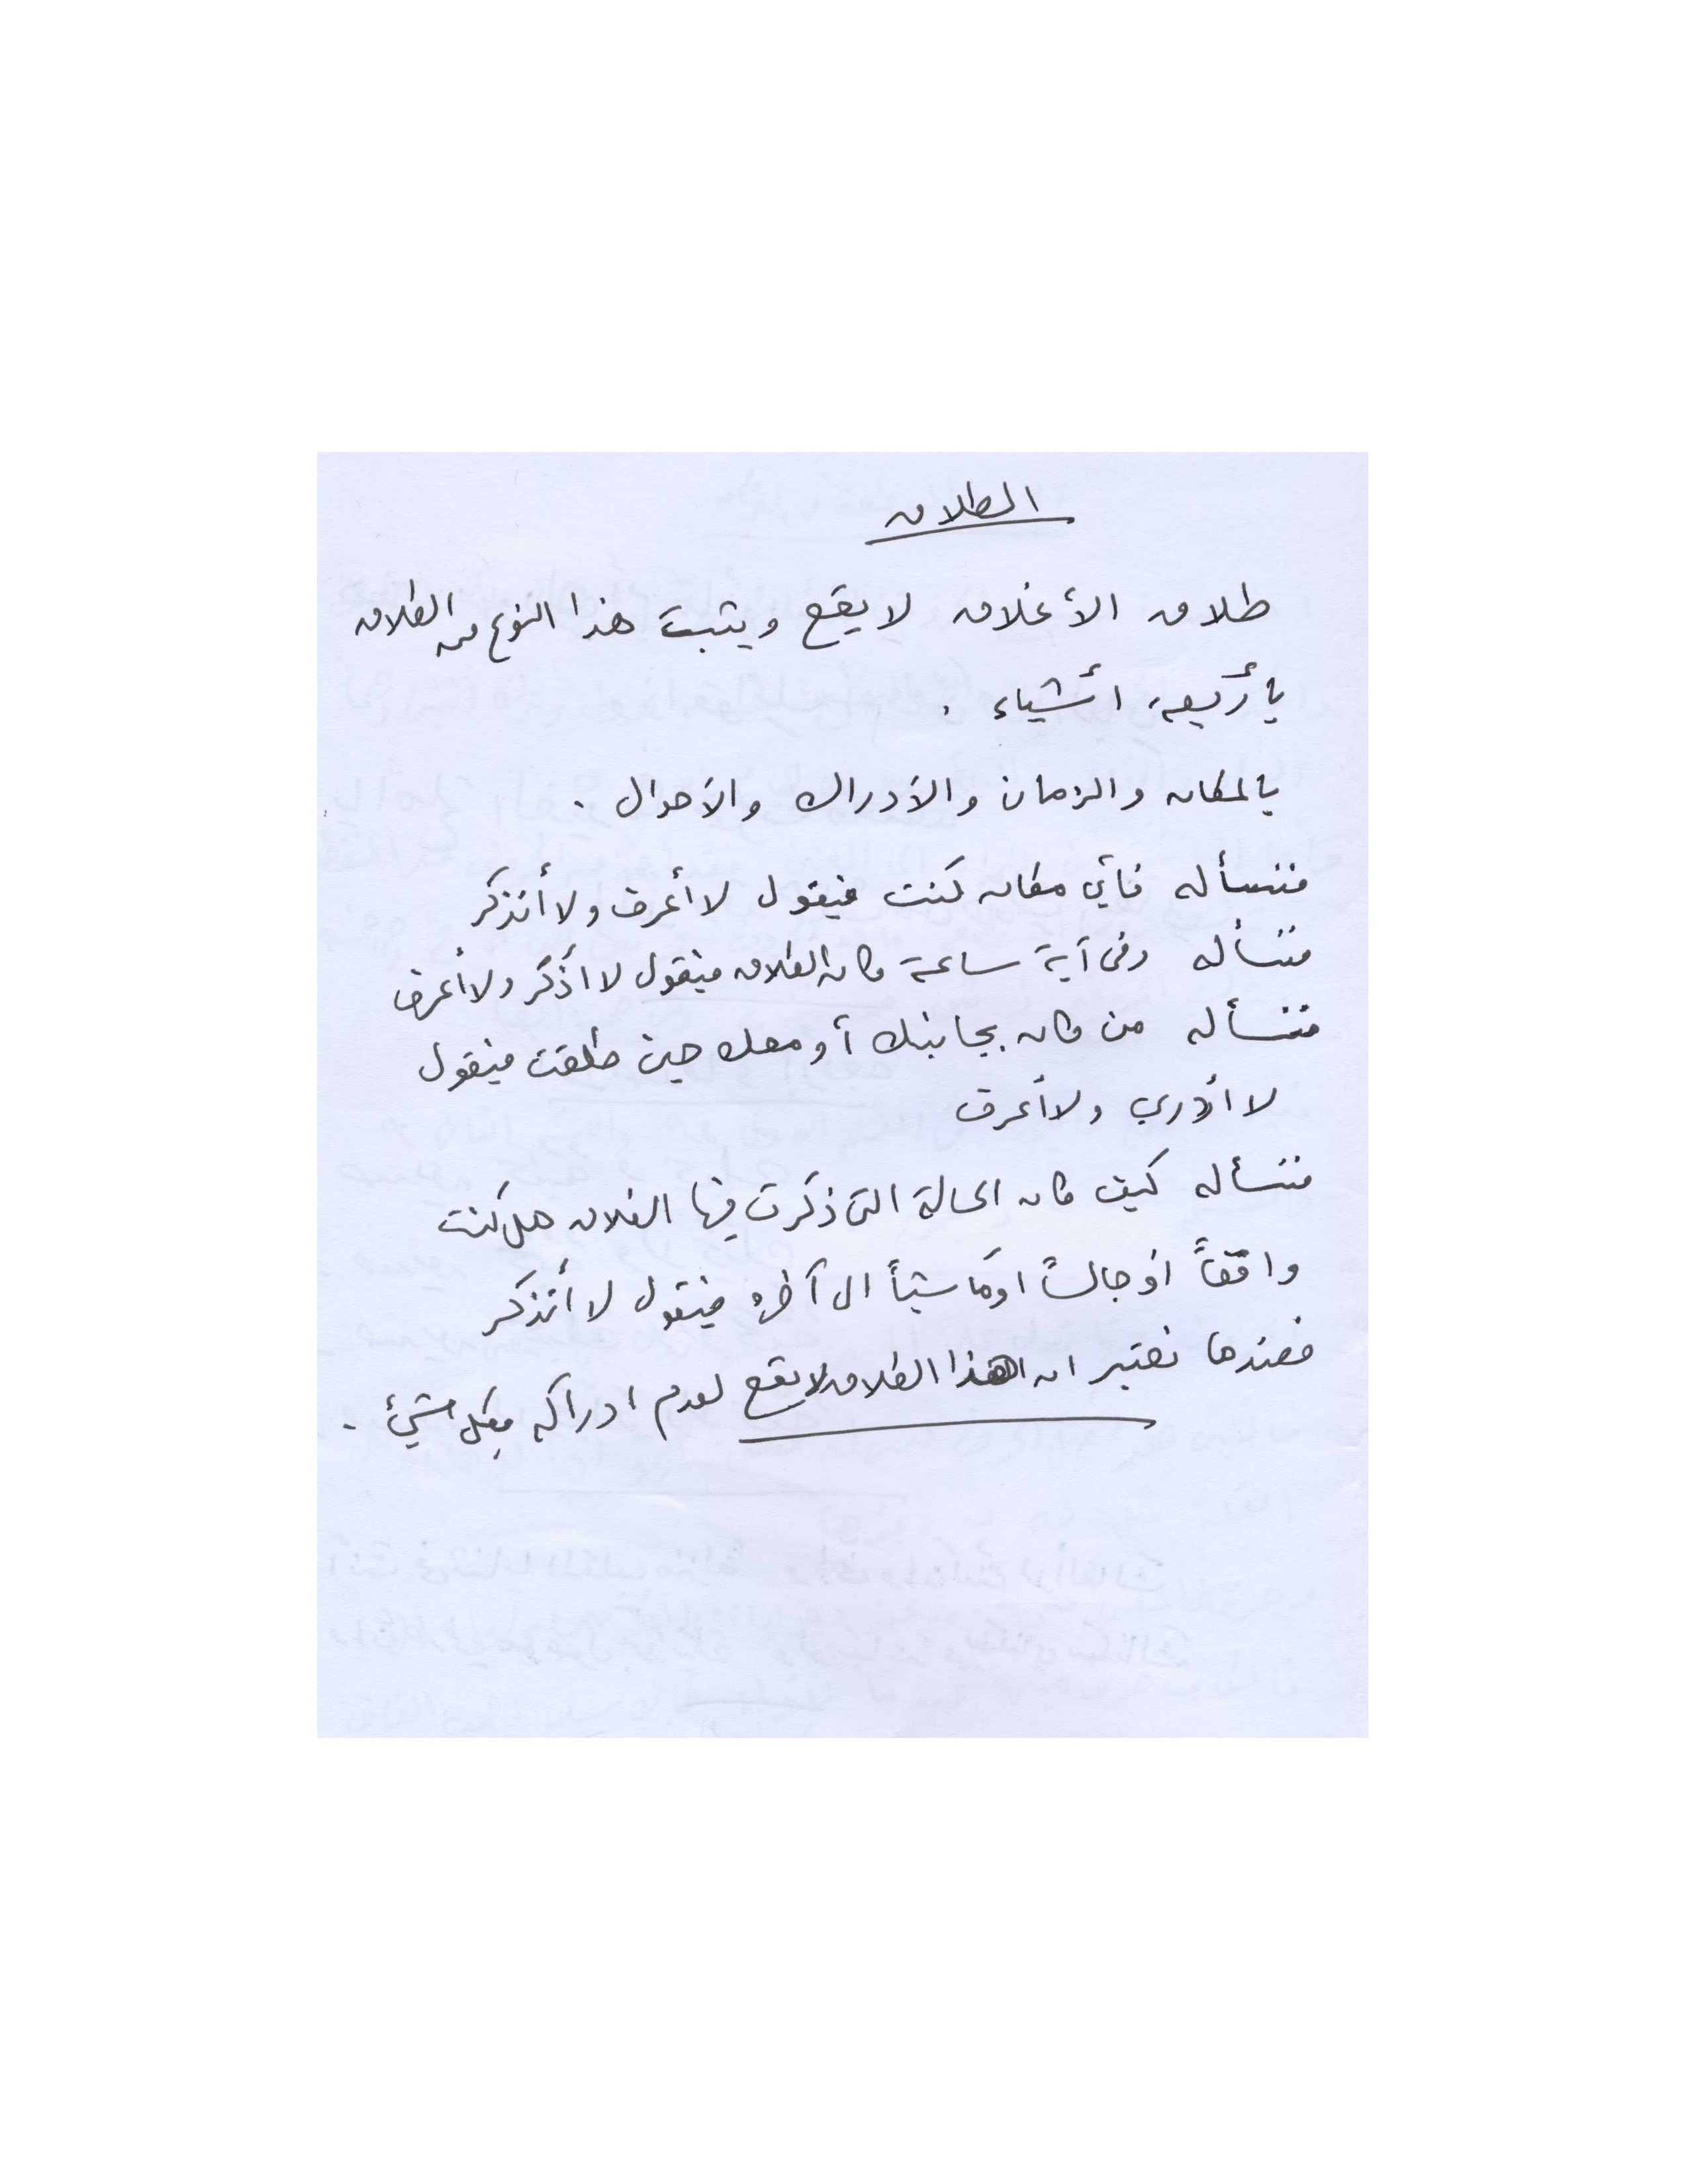 الطلاق
طلاق الأغلاق لا يقع ويثبت هذا النوع من الطلاق
بأربعة أشياء .
بالمكان والزمان والأدراك والأحوال .
فنسأله فأي مكان كنت فيقول لا أعرف ولا أتذكر
فنسأله وفي آية ساعة كان الطلاق فيقول لا أذكر ولا أعرف
فنسأله من كان بجانبك أو معك حين طلقت فيقول
لا أدري ولا أعرف
فنسأله كيف كان الحالة التي ذكرت فيها الطلاق هل كنت
واقفاً أو جالساً أو ماشياً الى آخره فيقول لا أتذكر
فعندها نعتبر ان هذا الطلاق لا يقع لعدم ادراكه بكل شيئ .